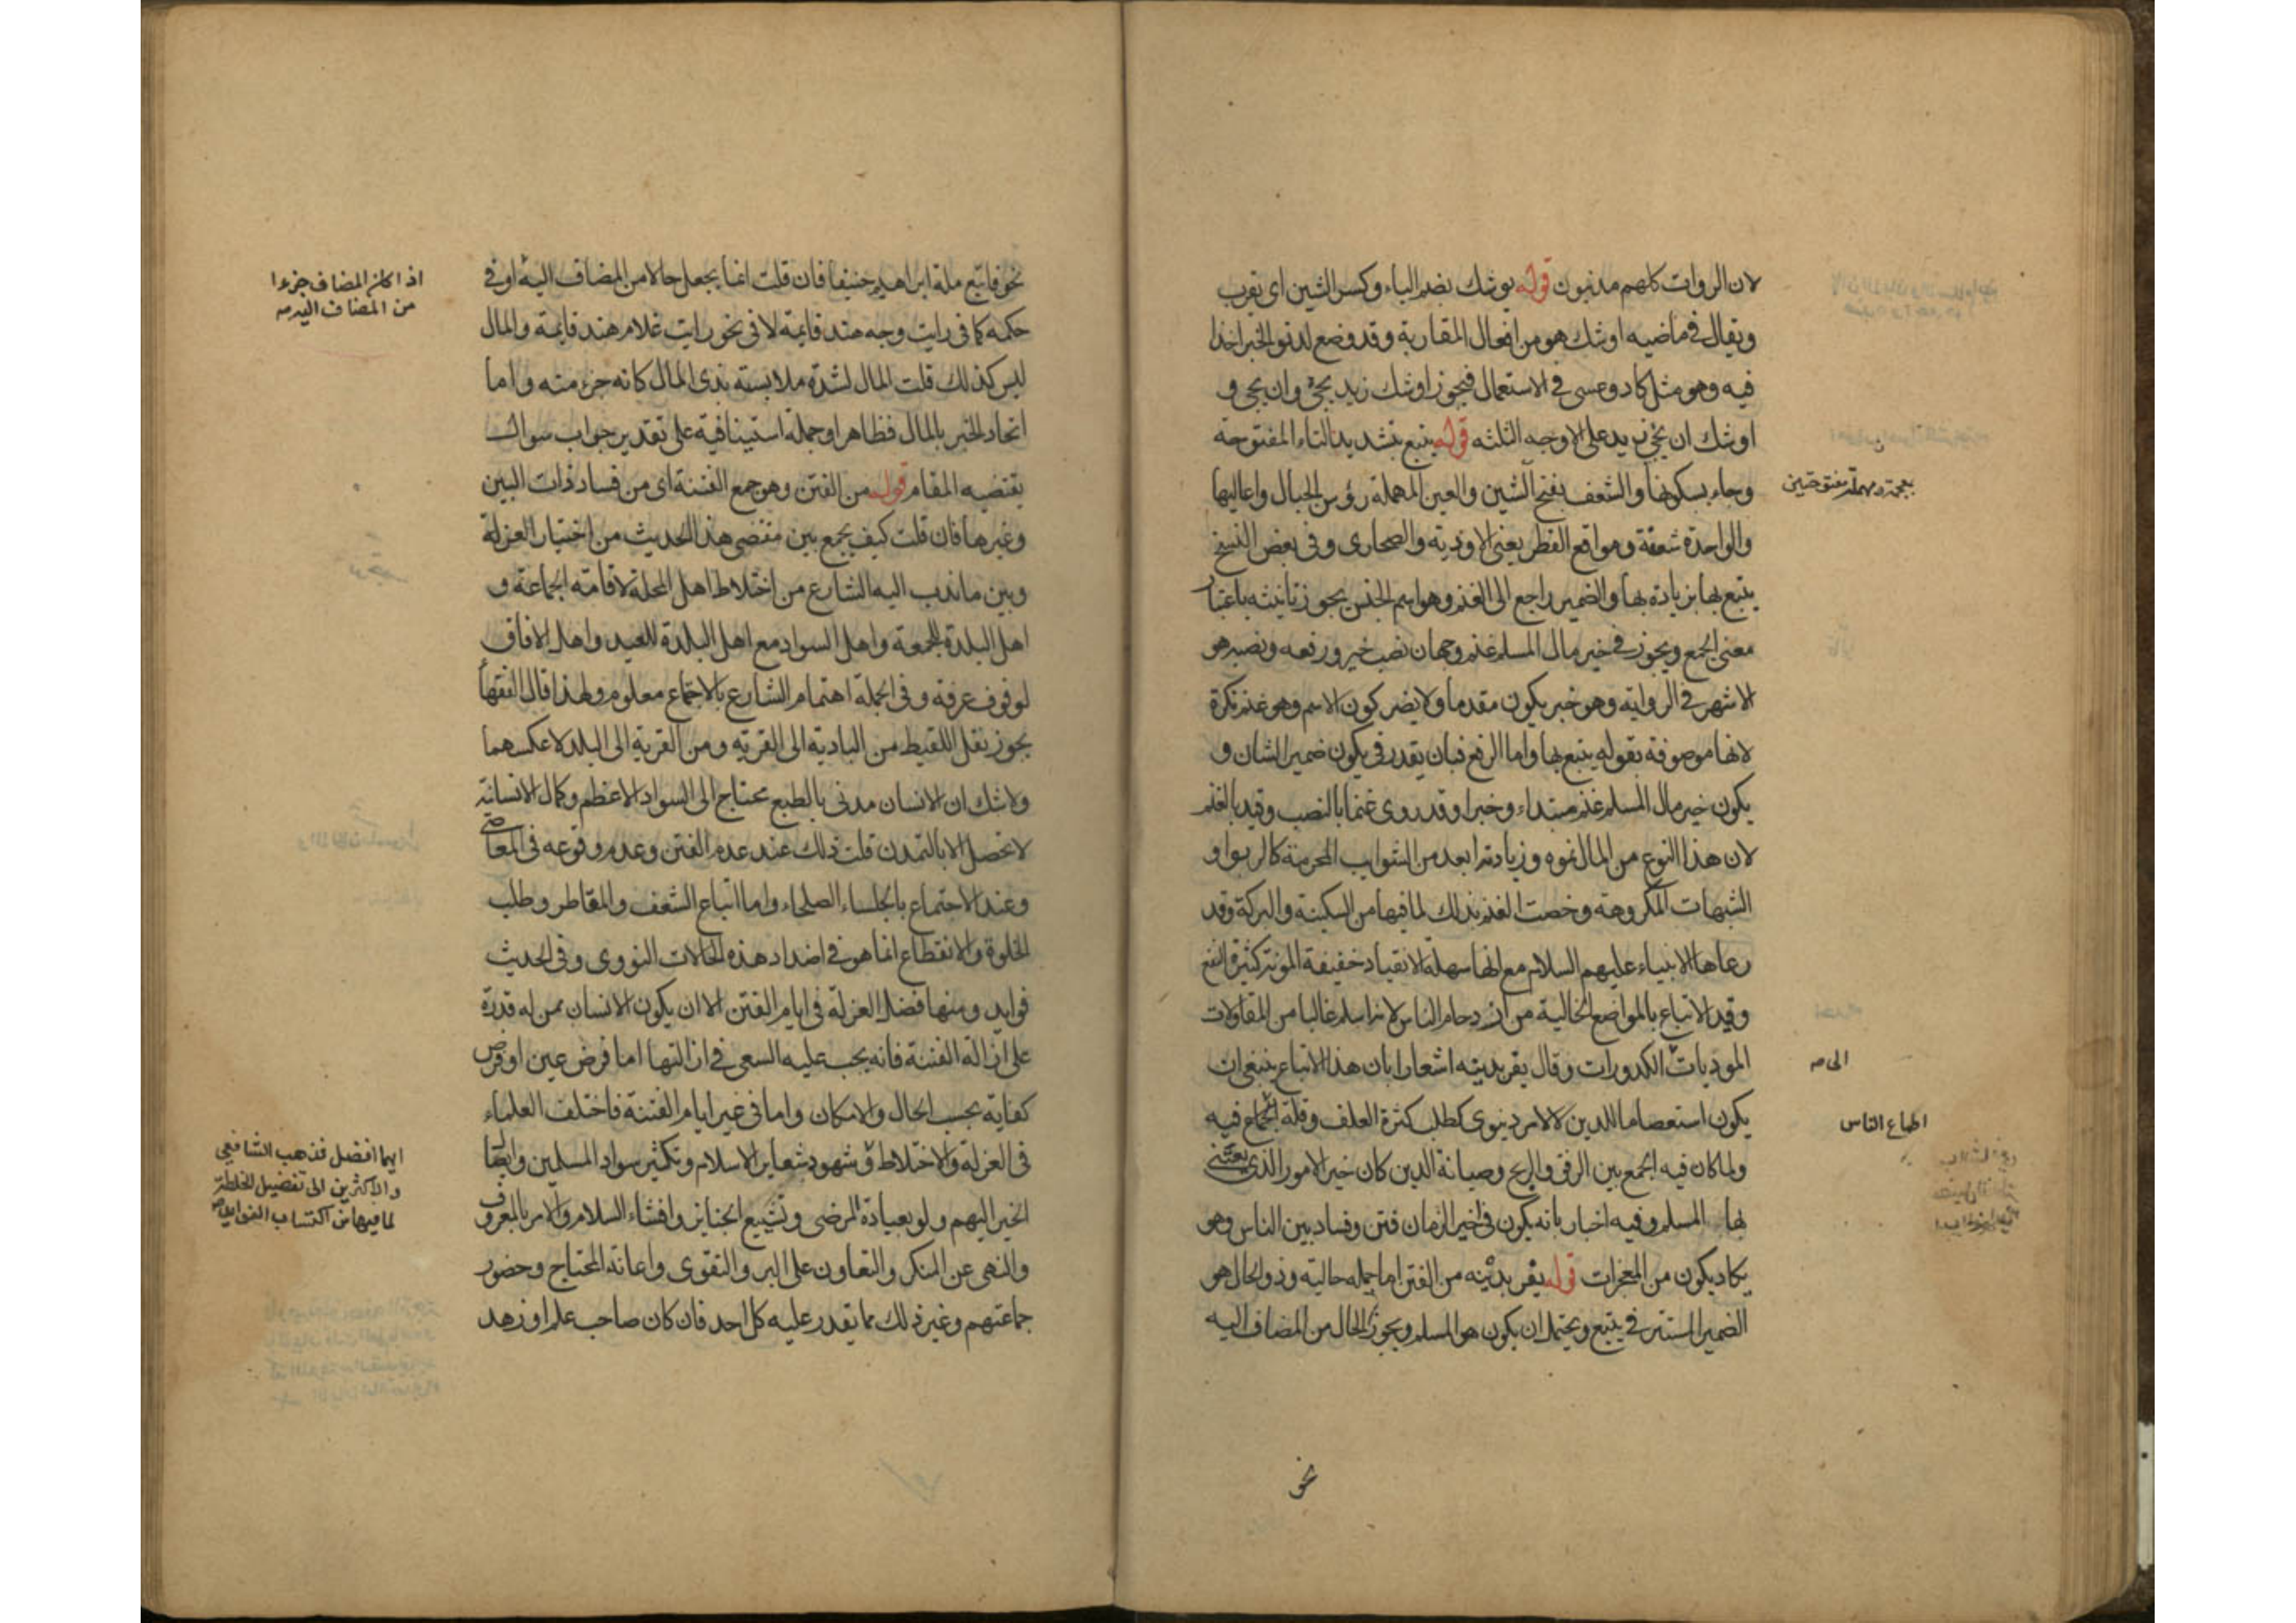 لان الروات كلهم مدنيون قوله يوشك بضم الياء وكسر الشين اى يقرب
ويقال فى ماضيه اوشك هو من افعال المقاربة وقد وضع لدنو الخبر اخذا
فيه وهو مثل كاد وعسى فى الاستعمال فيجوز اوشك زيد يجئ وان يجى و
اوشك ان يجئ زيد على الاوجه الثلثه قوله يتبع بتشديد التاء المفتوحة
وجاء بسكونها والشعف بفتح الشين والعين المهملة رؤس الجبال واعاليها
بمعجمة ومهملة مفتوحتين
والواحدة شعفة ومواقع القطر يعنى الاودية والصحارى وفى بعض النسخ
يتبع بها بزيادة بها والضمير راجع الى الغنم وهو اسم الجنس يجوز تانيثه باعتبار
معنى الجمع ويجوز فى خير مال المسلم غنم وجهان نصب خير ورفعه ونصبه هو
الاشهر فى الرواية وهو خبر يكون مقدما ولا يضر كون الاسم وهو غنم نكرة
لانها موصوفة بقوله يتبع بها واما الرفع فبان يقدر فى يكون ضمير الشان و
يكون خير مال المسلم غنم مبتداء وخبرا وقد روى غنما بالنصب وقيد بالغنم
لان هذا النوع من المال نموه وزيادته ابعد من الشوايب المحرمة كالربوا و
الشبهات المكروهة وخصت الغنم بذلك لما فيها من السكينة والبركة وقد
رعاها الانبياء عليهم السلام مع انها سهلة الانقياد خفيفة المونة كثيرة النفع
وقيد الاتباع بالمواضع الخالية من ازدحام الناس لانه اسلم غالبا من المقاولات
الموديات الكدورات وقال يفر بدينه اشعارا بان هذا الاتباع ينبغى ان
الى صه
يكون استعصاما للدين لا لامر دنيوى كطلب كثرة العلف وقلة اطماع فيه
اطماع الناس
ولما كان فيه الجمع بين الرفق والربح وصيانة الدين كان خير الامور الذى يعتنى
بها المسلم وفيه اخبار بانه يكون فى اخير الزمان فتن وفساد بين الناس وهو
يكاد يكون من المعجزات قوله يفر بدينه من الفتن اما جملة حالية وذو الحال هو
الضمير المستتر فى يتبع ويحتمل ان يكون هو المسلم ويجوز الحال من المضاف اليه
نحو
نحو فاتبع ملة ابراهيم حنيفا فان قلت انما يجعل حالا من المضاف اليه او فى
اذا كان المضاف جزءا
من المضاف اليه صه
حكمه كما فى رايت وجه هند قايمة لا فى نحو رايت غلام هند قايمة والمال
ليس كذلك قلت المال لشدة ملابسته بذى المال كانه جزء منه واما
اتحاد الخبر بالمال فظاهر او جملة استينافية على تقدير جواب سوال
يقتضيه المقام قوله من الفتن وهو جمع الفتنة اى من فساد ذات البين
وغيرها فان قلت كيف يجمع بين مقتضى هذا الحديث من اختيار العزلة
وبين ما ندب اليه الشارع من اختلاط اهل المحلة لاقامة الجماعة و
اهل البلدة للجمعة واهل السواد مع اهل البلدة للعيد واهل الافاق
لوقوف عرفة وفى الجملة اهتمام الشارع بالاجتماع معلوم ولهذا قال الفقهأ
يجوز نقل اللقيط من البادية الى القرية ومن القرية الى البلد لا عكسهما
ولا شك ان الانسان مدنى بالطبع محتاج الى السواد الاعظم وكمال الانسانية
لا تحصل الا بالتمدن قلت ذلك عند عدم الفتن وعدم وقوعه فى المعاصى
وعند الاجتماع بالجلساء الصلحاء واما اتباع الشعف والمقاطر وطلب
الخلوة والانقطاع انما هو فى اضداد هذه الحالات النووى وفى الحديث
فوايد ومنها فضل العزلة فى ايام الفتن الا ان يكون الانسان ممن له قدرة
على ازالة الفتنة فانه يجب عليه السعى فى ازالتها اما فرض عين او فرض
كفاية بحسب الحال والامكان واما فى غير ايام الفتنة فاختلف العلماء
فى العزلة والاختلاط وشهود شعاير الاسلام وتكثير سواد المسلمين وايصال
ايهما افضل فذهب الشافعى
والاكثرين الى تفضيل الخلطة
لما فيها من اكتساب
الخير اليهم ولو بعيادة المرضى وتشييع الجنايز وافشاء السلام والامر بالمعروف
والنهى عن المنكر والتعاون على البر والتقوى واعانة المحتاج وحضور
جماعتهم وغير ذلك مما يقدر عليه كل احد فان كان صاحب علم او زهد